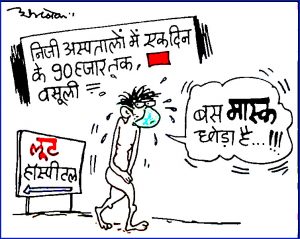 निजी अस्पतालों में एक दिन
के 90 हजार तक,
वसूली =
बस मास्क
छोड़ा है...!!!
लूट
हॉस्पीटल